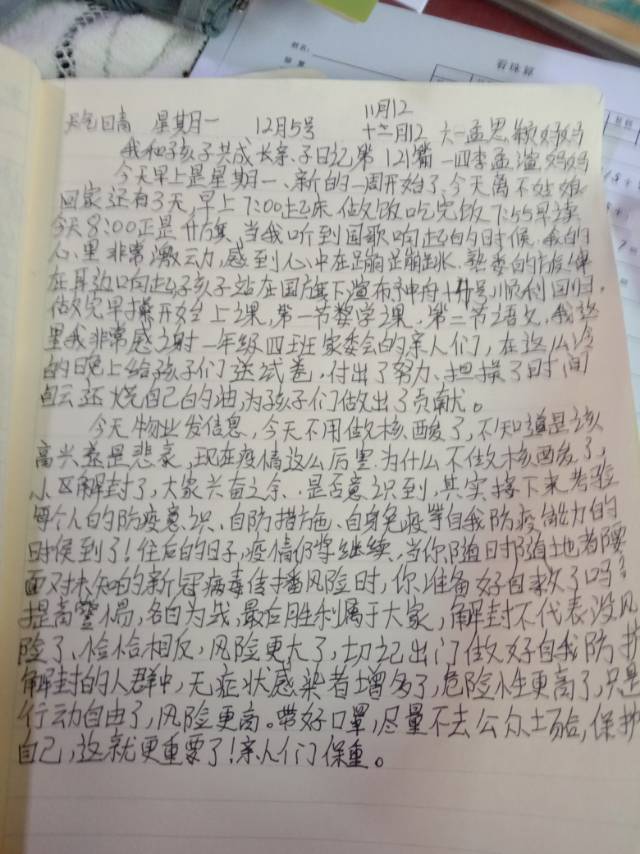 看珠算
姓名:
11月12
天气日高 星期一 12月5号 十二月12 六一孟思颖妈妈
我和孩子共成长亲子日记第121篇一四李孟滢妈妈
今天早上是星期一、新的一周开始了、今天离不姑娘
回家还有3天,早上7:00起床做饭吃完饭7:55早读
今天8:00正是升旗,当我听到国歌响起的时候.我的
心里非常激动,感到心中在蹦蹦跳.熟悉的旋律
在耳边响起孩子站在国旗下宣布神舟十四号顺利回归.
做完早操开始上课,第一节数学课.第二节语文.我这
里我非常感谢一年级四班家委会的亲人们,在这么冷
的晚上给孩子们送试卷,付出了努力、担操了时间
自己还烧自己的油,为孩子们做出了贡献。
今天物业发信息,今天不用做核酸了,不知道是该
高兴还是悲哀,现在疫情这么厉里.为什么不做核酸了,
小区解封了,大家兴奋之余.是否意识到,其实接下来考验
每个人的防疫意识、自防措施、自身免疫等自我防疫能力的
时候到了!往后的日子,疫情仍学继续,当你随时随地者陵
面对未知的新冠病毒传播风险时,你准备好自来了吗?
提高警惕,各自为战,最后胜利属于大家,解封不代表没风
险了、恰恰相反,风险更大了,切记出门做好自我防护
解封的人群中,无症状感染者增多了,危险性更高了,只是
行动自由了,风险更高。带好口罩,尽量不去公众场合,保护
自己,这就更重要了!亲人们保重。